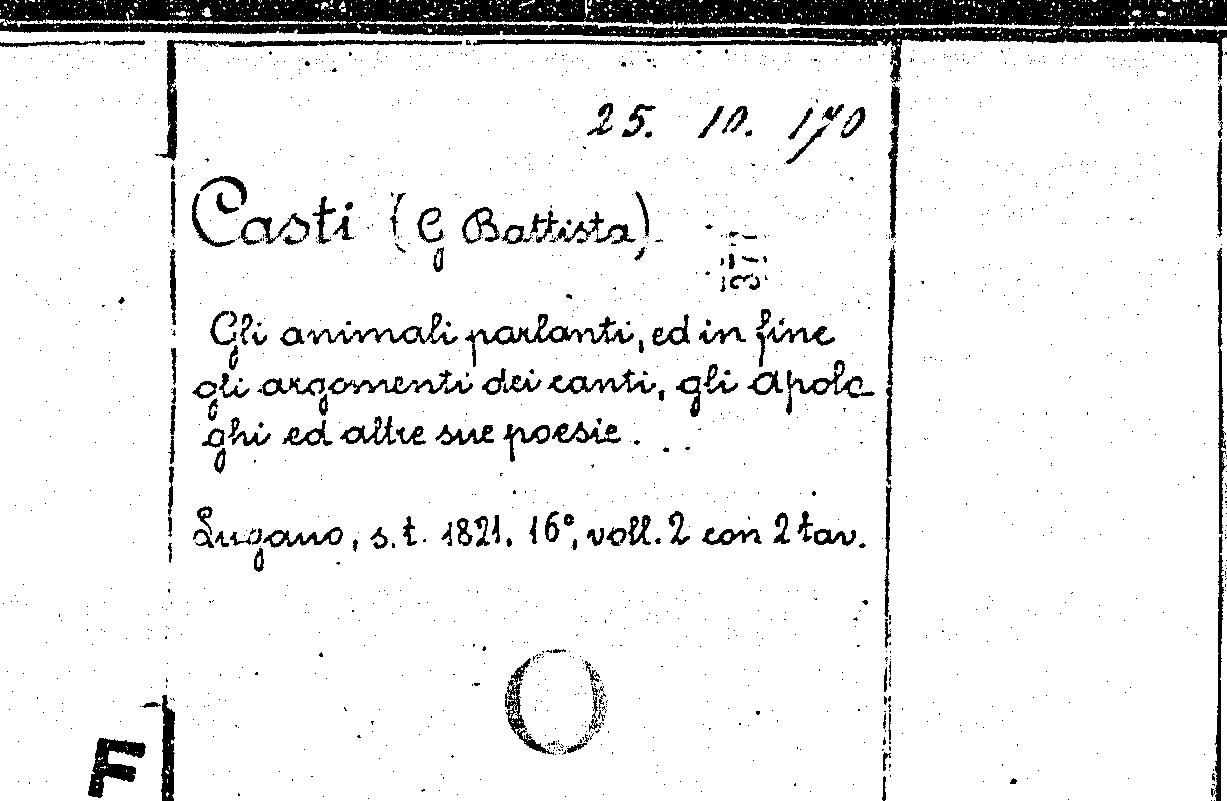 25. 10. 170
Casti (G Battista)
Gli animali parlanti, ed in fine
gli argomenti dei canti, gli apolo
ghi ed altre sue poesie.
Lugano, s. t. 1821. 16°, voll. 2 con 2 tav.
F